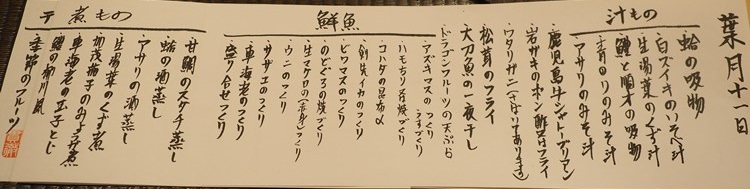 葉月十一日
汁もの
蛤の吸物
白ズイキのいそべ汁
生湯葉のくず汁
鱧と順才の吸物
青のりのみそ汁
アサリのみそ汁
鹿児島牛シャトーブリアン
岩ガキのポン酢又はフライ
ワタリガニ(そばいてあります)
松茸のフライ
太刀魚の一夜干し
ドラゴンフルーツの天ぷら
鮮魚
アズキマスのつくり
うすづくり
ハモちり又は焼づくり
コハダの昆布〆
剣先イカのつくり
ビワマスのつくり
のどぐろの焼づくり
生マグロの(赤身)つくり
ウニのつくり
サザエのつくり
車海老のつくり
盛り合せつくり
煮もの
甘鯛のスケチ蒸し
蛤の酒蒸し
アサリの酒蒸し
生湯葉のくず煮
加茂茄子のみぞれ煮
車海老の玉子とじ
鱧の柳川風
デ
季節のフルーツ